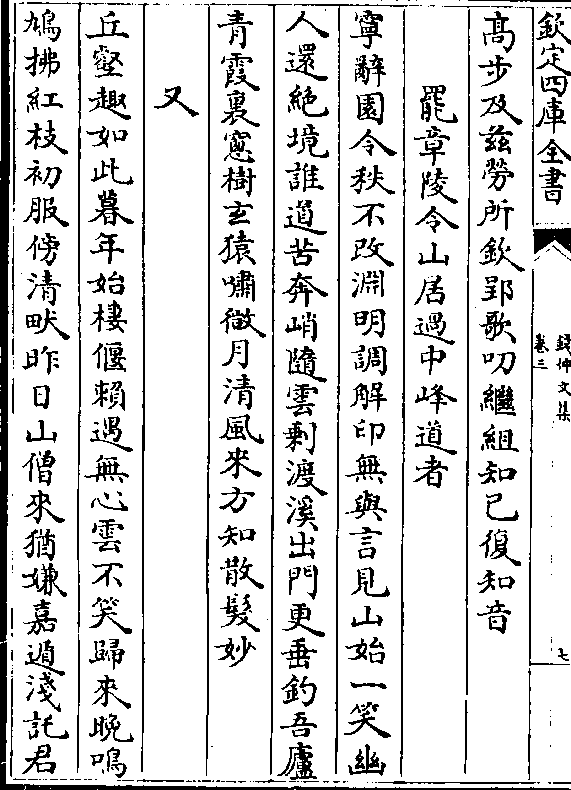 欽定四庫全書
錢仲文集
卷三
七
高步及茲勞所欽郢歌叨繼組知己復知音
罷章陵令山居過中峰道者
寧辭園令秩不改淵明調解印無與言見山始一笑幽
人還絶境誰道苦奔峭隨雲剩渡溪出門更垂釣吾廬
青霞裏窓樹玄猿嘯微月清風來方知散髮妙
又
丘壑趣如此暮年始棲偃賴遇無心雲不笑歸來晚鳴
鳩拂紅枝初服傍清畎昨日山僧來猶嫌嘉遁淺託君